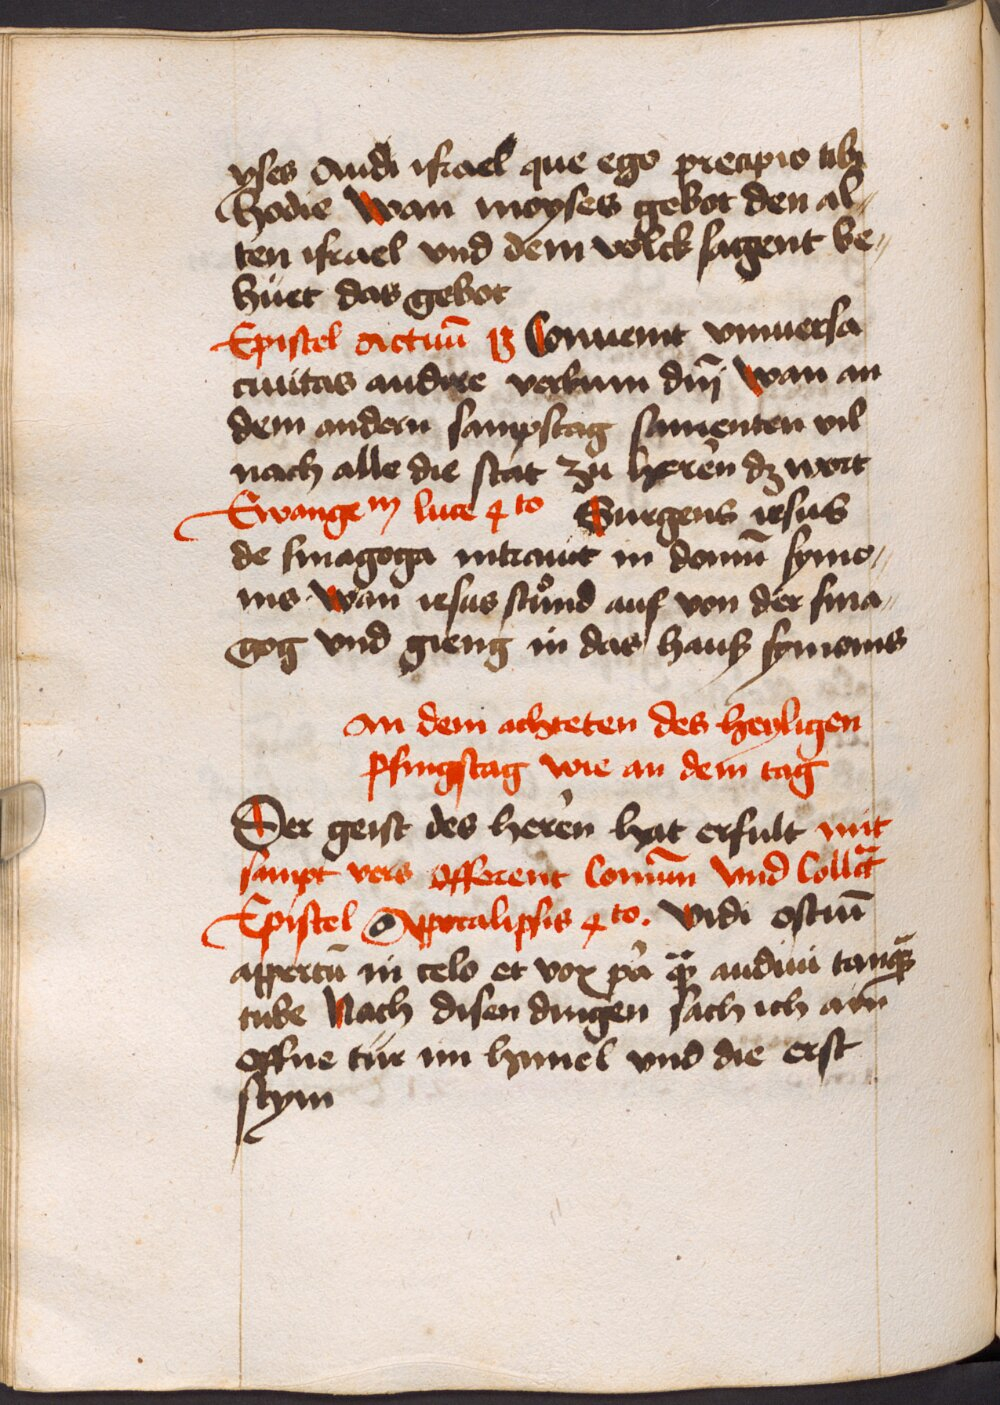 yses Audi israel que ego precipio tibi
hodie Wan moyses gebot den al-
ten israel vnd dem volck sagent be-
hüet das gebot
Epistel actuū 13 Conuenit vniuersa
ciuitas audire verbum dnj̄ Wan an
dem andern sampstag samenten vil
nach alle die stat zu heren dz wort
Ewangem luce 4to Surgens iesus
de sinagoga intrauit in domū symo-
nis Wan iesus stůnd auf von der sina-
gog vnd gieng in das hauß symonis
An dem achteten des heyligen
Pfingstag wie an dem tag
Der geist des heren hat erfult mit
sampt vers offerent Comūn vnd Collct
Epistel Appocalipsis 4to. Vidi ostiū
appertū in celo et vox pa qm audiui tanqm
tube Nach disen dingen sach ich ain
offne tür im himel vnd die erst
stym